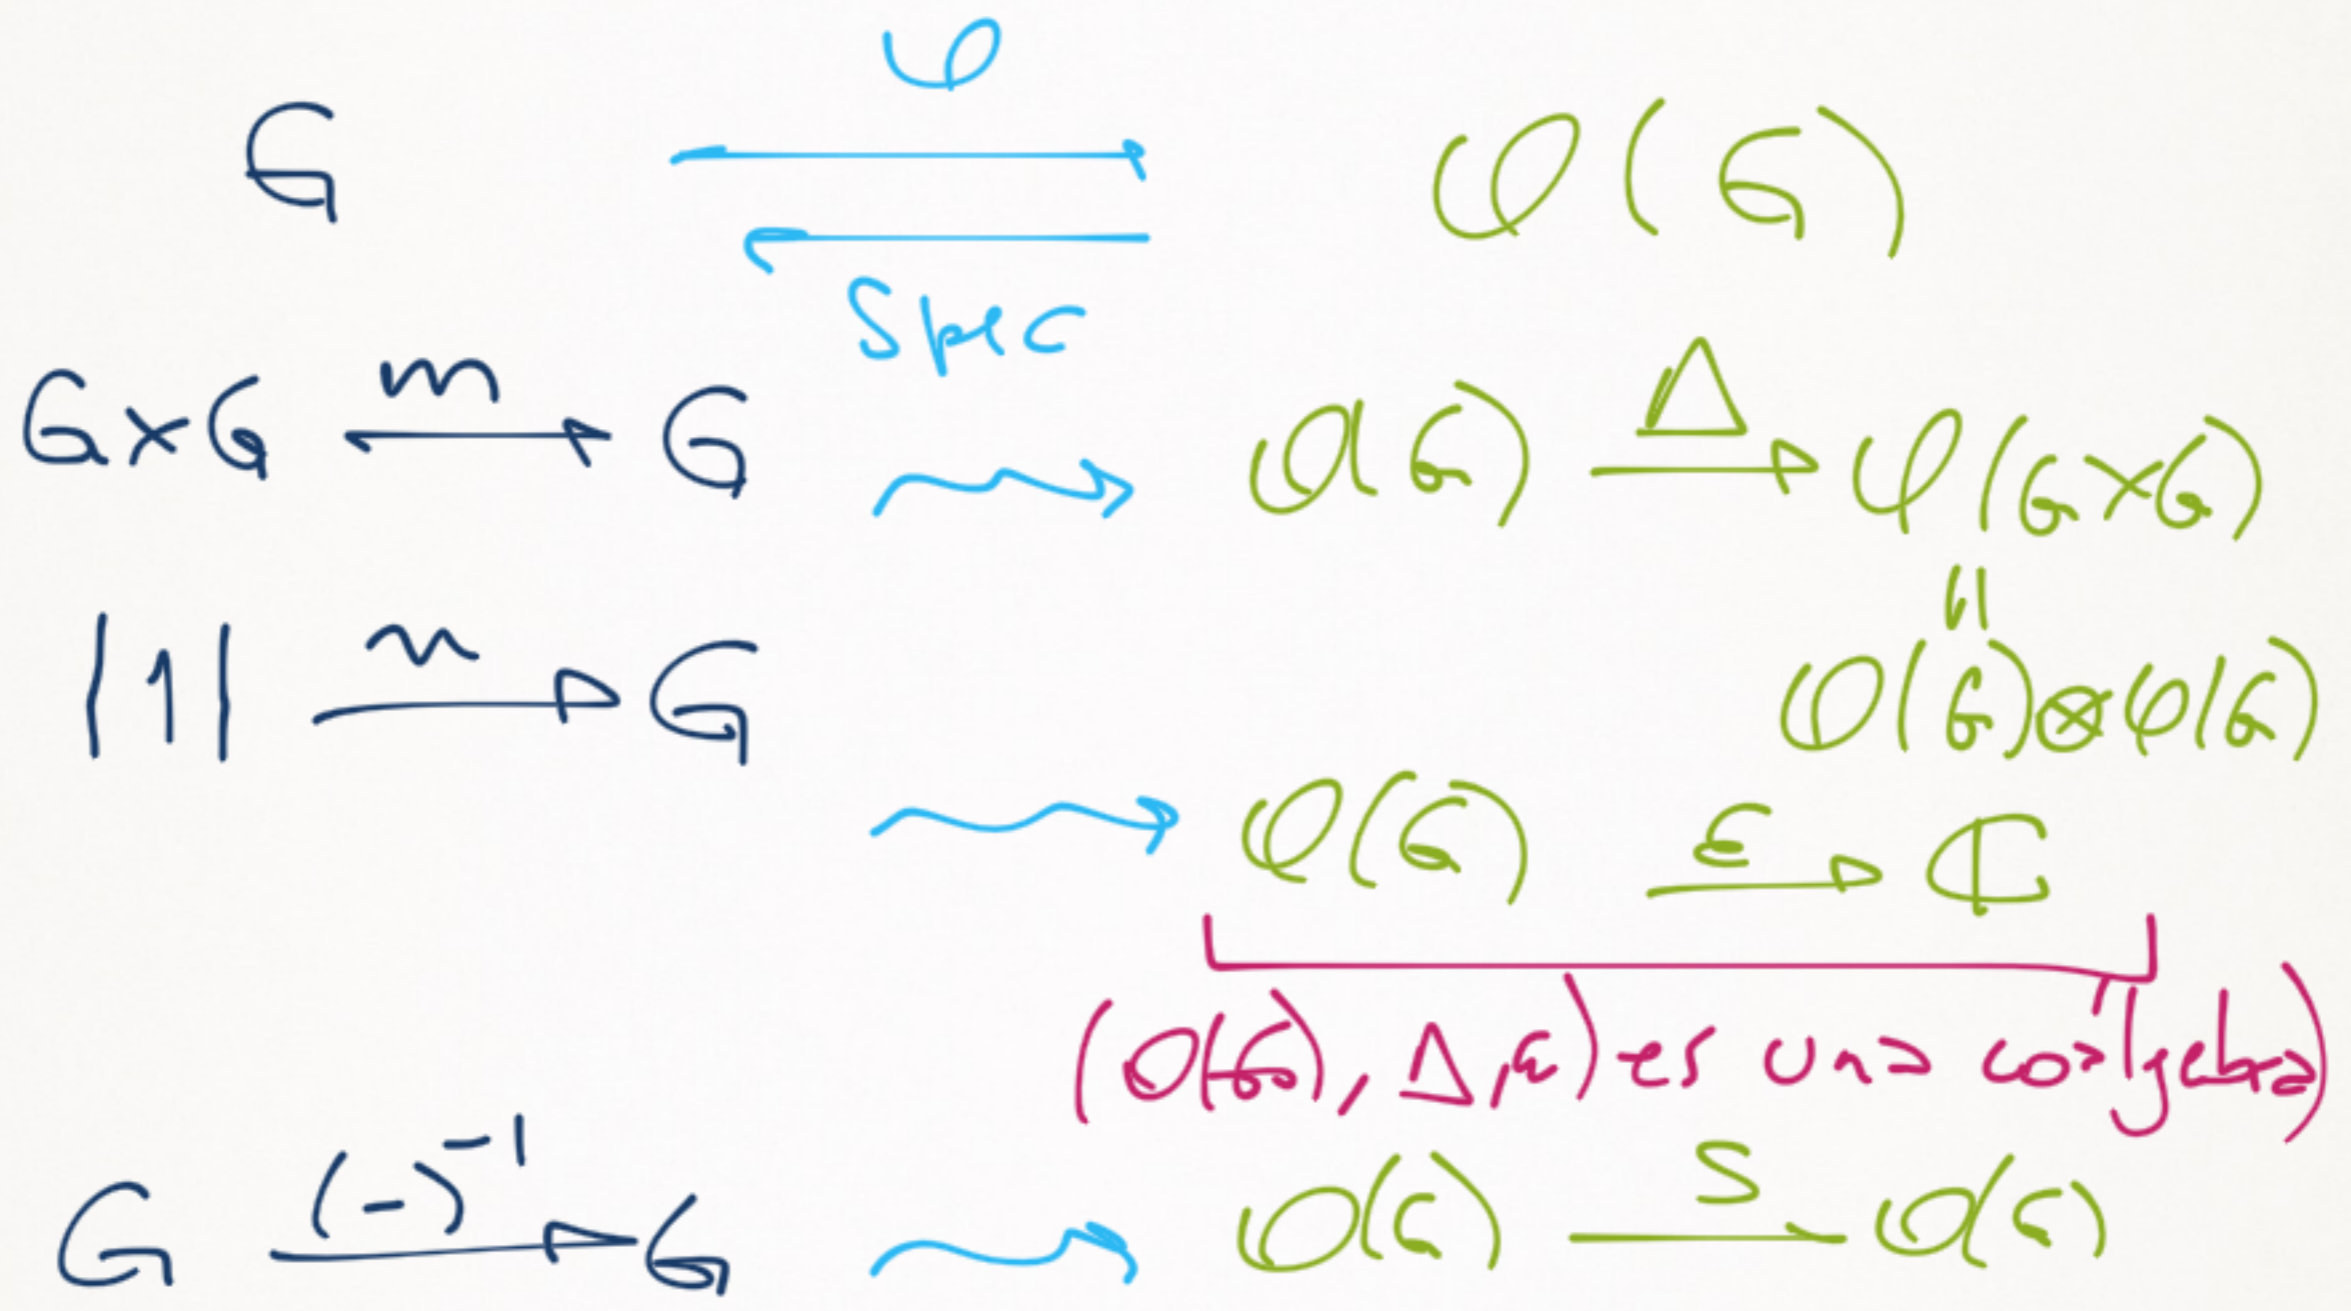 𝒪
G ⇄ 𝒪(G)
Spec
G×G —m→ G ⇝ 𝒪(G) —Δ→ 𝒪(G×G)
||
{1} —u→ G 𝒪(G)⊗𝒪(G)
⇝ 𝒪(G) —ε→ ℂ
(𝒪(G), Δ, ε) es una coálgebra)
G —(-)⁻¹→ G ⇝ 𝒪(G) —S→ 𝒪(G)